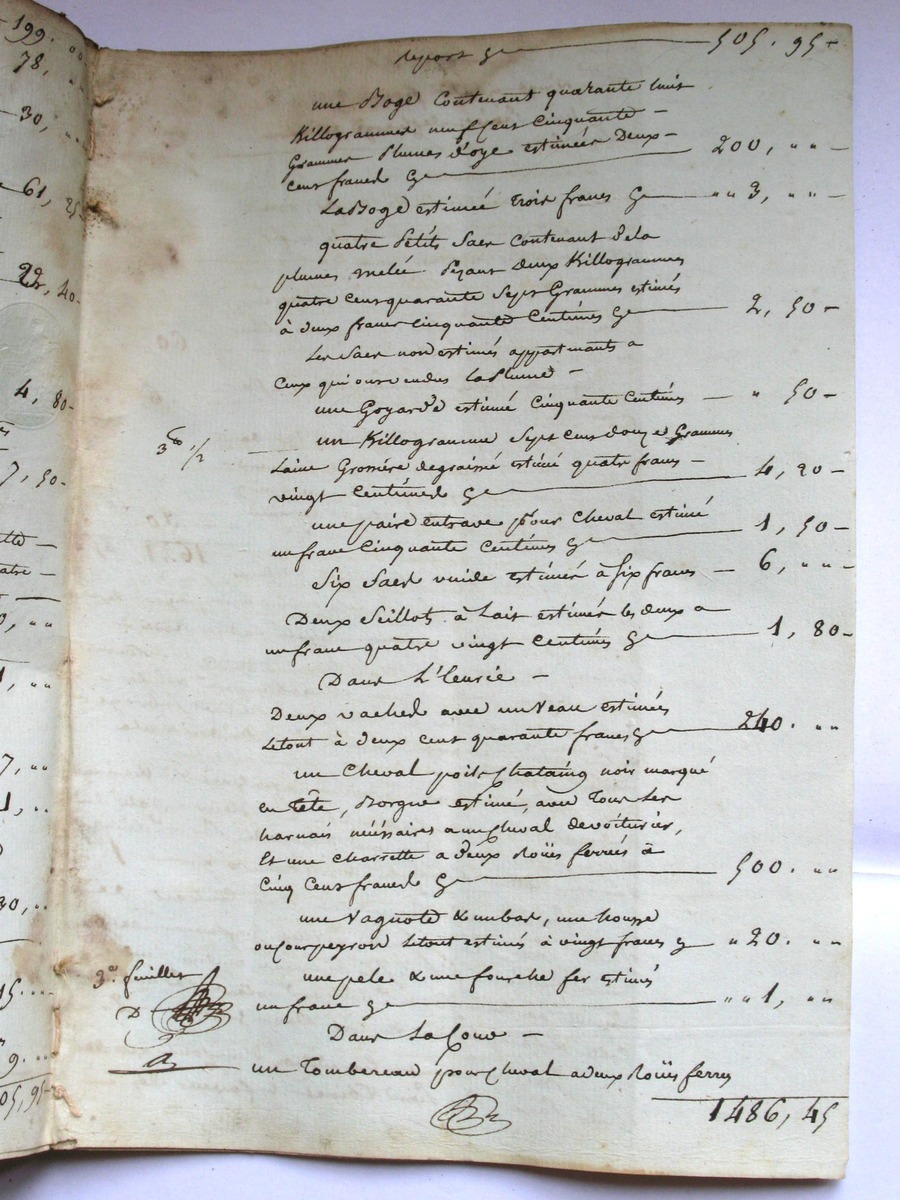 199. "
78, "
30, "
61, 25
22, 40-
4, 80-
7, 50-
0, "
1, "
7, "
1, "
30, "
15. ...
9. ...
505, 95-
report ... 505. 95-
une Boge Contenant quarante huit
Killogrammes neuf Cent Cinquante -
Grammes Plumes d'oye estimées Deux -
cent francs ... 200, " -
La Boge estimée trois francs ... " 3, " -
quatre Petits Sacs Contenant dela
plumes melée Pezant Deux Killogrammes
quatre Cent quarante Sept Grammes estimés
à deux francs Cinquante Centimes ... 2, 50-
Les Sacs non estimés appartenants a
Ceux qui ont vendus la Plume -
une Goyarde estimé Cinquante Centimes - " 50-
3 lb 1/2 - un Killogramme Sept Cent douze Grammes
Laine Grossière degraissé estimé quatre francs -
vingt Centimes ... 4, 20-
une paire entrave pour Cheval estimé
un franc Cinquante Centimes ... 1, 50-
Six Sacs vuide estimés à Six francs - 6, " -
Deux Seillots à Lait estimés les deux a
un franc quatre vingt Centimes ... 1, 80-
Dans L'Ecurie -
Deux vaches avec un Veau estimées
Le tout à deux cent quarante francs ... 240. "
un Cheval poils Chataing noir marqué
en Tête, Borgne estimé, avec Tous Les
harnais nécéssaires a un Cheval de voiturier,
Et une Charrette a deux Roües ferrées à
Cinq Cent francs ... 500. "
une Vagnote & un bas, une housse
ou Courpeyron Le tout estimés à vingt francs " 20. "
une pele & une fourche fer estimés
un franc ... " 1, "
3e. feuillet
D
Dans La Cour -
un Tombereau pour Cheval a deux Roües ferres
1486, 45